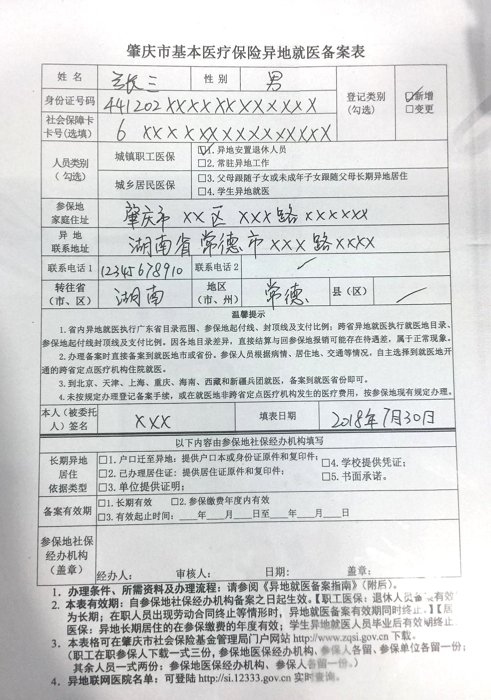 肇庆市基本医疗保险异地就医备案表
姓 名 张三 性 别 男 登记类别（勾选） ☑新增 □变更
身份证号码 441202XXXXXXXXXXXX
社会保障卡卡号(选填) 6 XXXXXXXXXXXXXX
人员类别（勾选） 城镇职工医保 ☑1. 异地安置退休人员
□2. 常驻异地工作
城乡居民医保 □3. 父母跟随子女或未成年子女跟随父母长期异地居住
□4. 学生异地就医
参保地家庭住址 肇庆市XX区XXX路XXXXXX
异 地联系地址 湖南省常德市XXX路XXXX
联系电话1 12345678910 联系电话2 /
转往省（市、区） 湖南 地区（市、州） 常德 县（区） /
温馨提示
1. 省内异地就医执行广东省目录范围、参保地起付线、封顶线及支付比例；跨省异地就医执行就医地目录、
参保地起付线封顶线及支付比例。因各地目录差异，直接结算与回参保地报销可能存在待遇差，属于正常现象。
2. 办理备案时直接备案到就医地市或省份。参保人员根据病情、居住地、交通等情况，自主选择到就医地开
通的跨省定点医疗机构住院就医。
3. 到北京、天津、上海、重庆、海南、西藏和新疆兵团就医，备案到就医省份即可。
4. 未按规定办理登记备案手续，或在就医地非跨省定点医疗机构发生的医疗费用，按参保地现有规定办理。
本人（被委托人）签名 XXX 填表日期 2018年7月30日
以下内容由参保地社保经办机构填写
长期异地居住依据类型 □1. 户口迁至异地：提供户口本或身份证原件和复印件； □4. 学校提供凭证；
□2. 已办理居住证：提供居住证原件和复印件； □5. 书面承诺。
□3. 单位提供证明；
备案有效期 □1. 长期有效 □2. 参保缴费年度内有效
□3. 有效起止时间：____年____月____日至____年____月____日
参保地社保经办机构（盖章）
经办人： 审核人： 日期： 盖章：
1. 办理条件、所需资料及办理流程：请参阅《异地就医备案指南》（附后）。
2. 本表有效期：自参保地社保经办机构备案之日起生效。【职工医保：退休人员备案有效
为长期；在职人员出现劳动合同终止等情形时，异地就医备案有效期同时终止。】【居
医保：异地长期居住的在参保缴费的年度有效；学生异地就医人员毕业后有效期终止
3. 本表格可在肇庆市社会保险基金管理局门户网站 http://www.zqsi.gov.cn 下载。
（职工在职参保人下载一式三份，参保地医保经办机构、参保人各留、参保单位各留一份；
其余人员一式两份：参保地医保经办机构、参保人各留一份。）
4. 异地联网医院名单：可登陆 http://si.12333.gov.cn 实时查询。